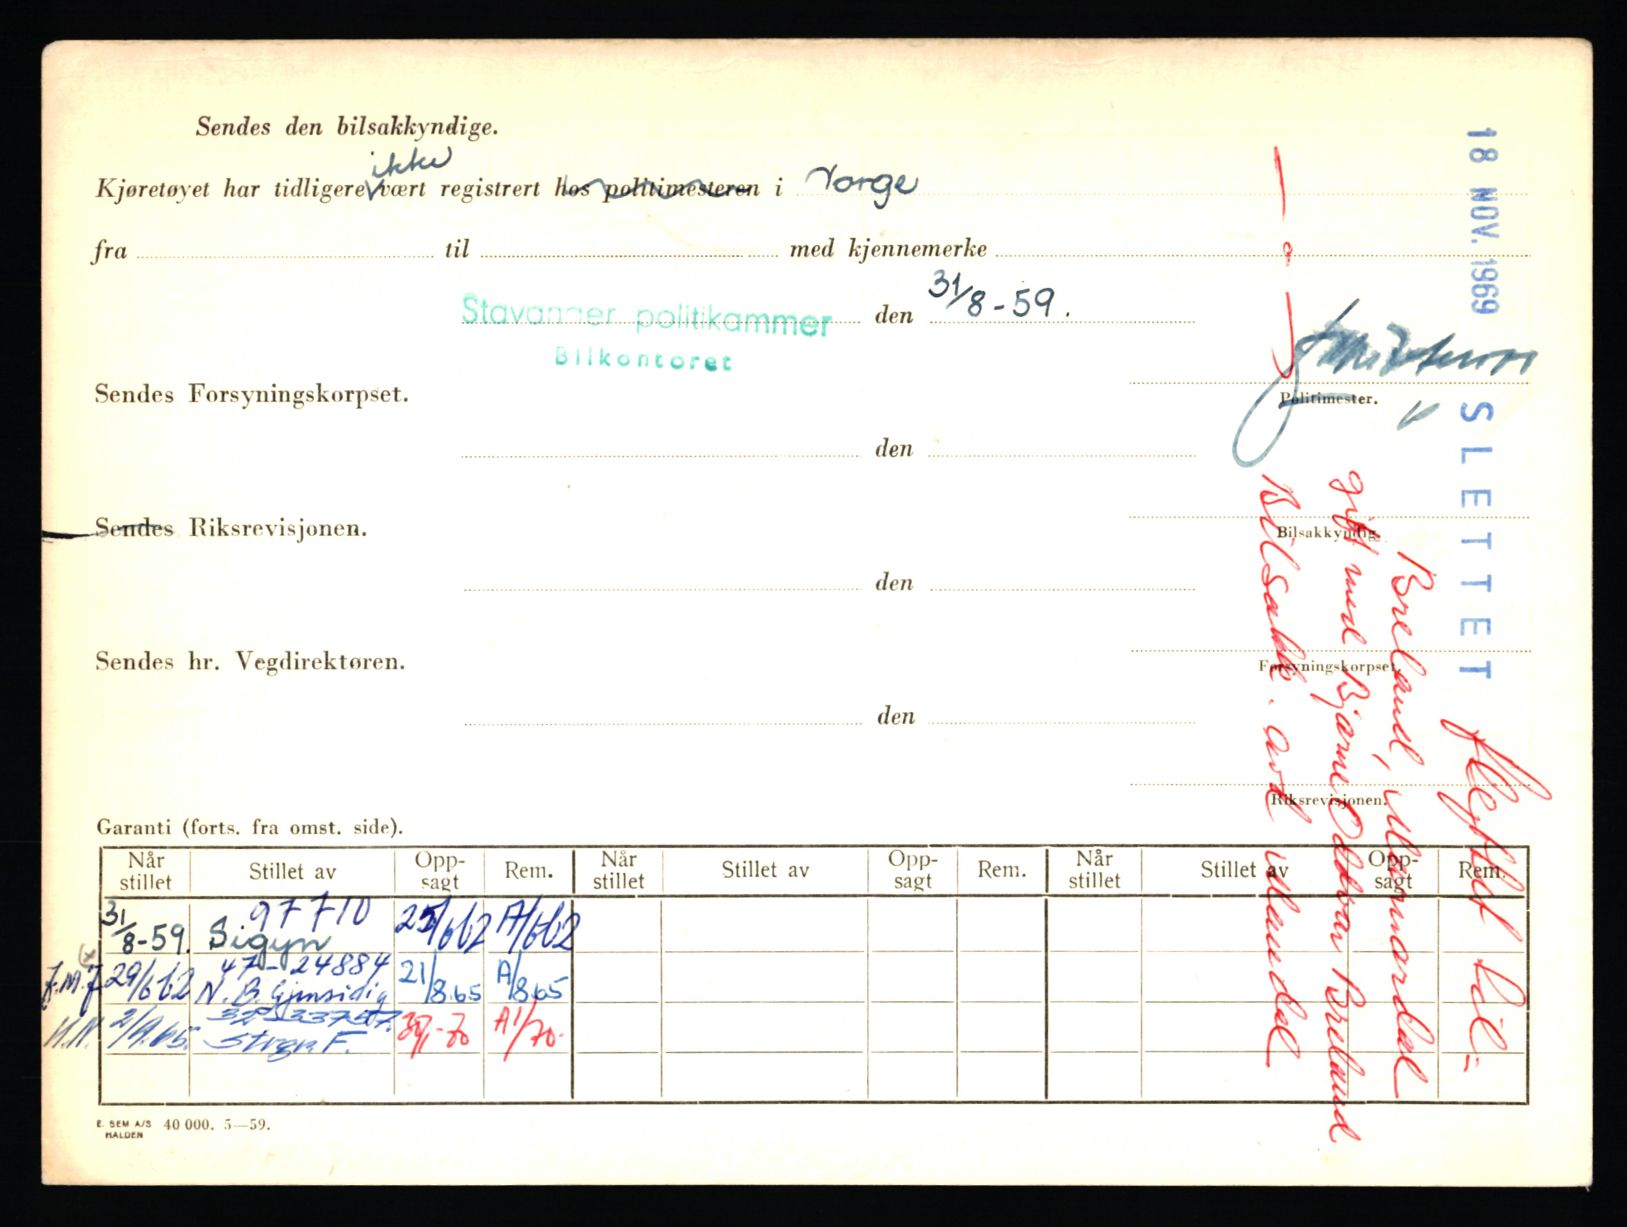 Sendes den bilsakkyndige.
ikke
Kjøretøyet har tidligere vært registrert hos politimesteren i Norge
fra til med kjennemerke
Stavanger politikammer den 31/8-59.
Bilkontoret
Politimester.
Sendes Forsyningskorpset.
den
Bilsakkyndig.
Sendes Riksrevisjonen.
den
Forsyningskorpset.
Sendes hr. Vegdirektøren.
den
Riksrevisjonen.
18 NOV. 1969 SLETTET
flyttet til =
Breland, Marnardal
gift med Bjarne Oddvar Breland
Bilsakk. avd Mandal
Garanti (forts. fra omst. side).
Når stillet Stillet av Oppsagt Rem. Når stillet Stillet av Oppsagt Rem. Når stillet Stillet av Oppsagt Rem.
31/8-59. 97710 Sigyn 25/662 A/662
J.M.J 29/662 47-24884 N. B. Gjensidig 21/8.65 A/865
N.N. 2/9.65. F. A1/70.
E. SEM A/S HALDEN 40 000. 5—59.